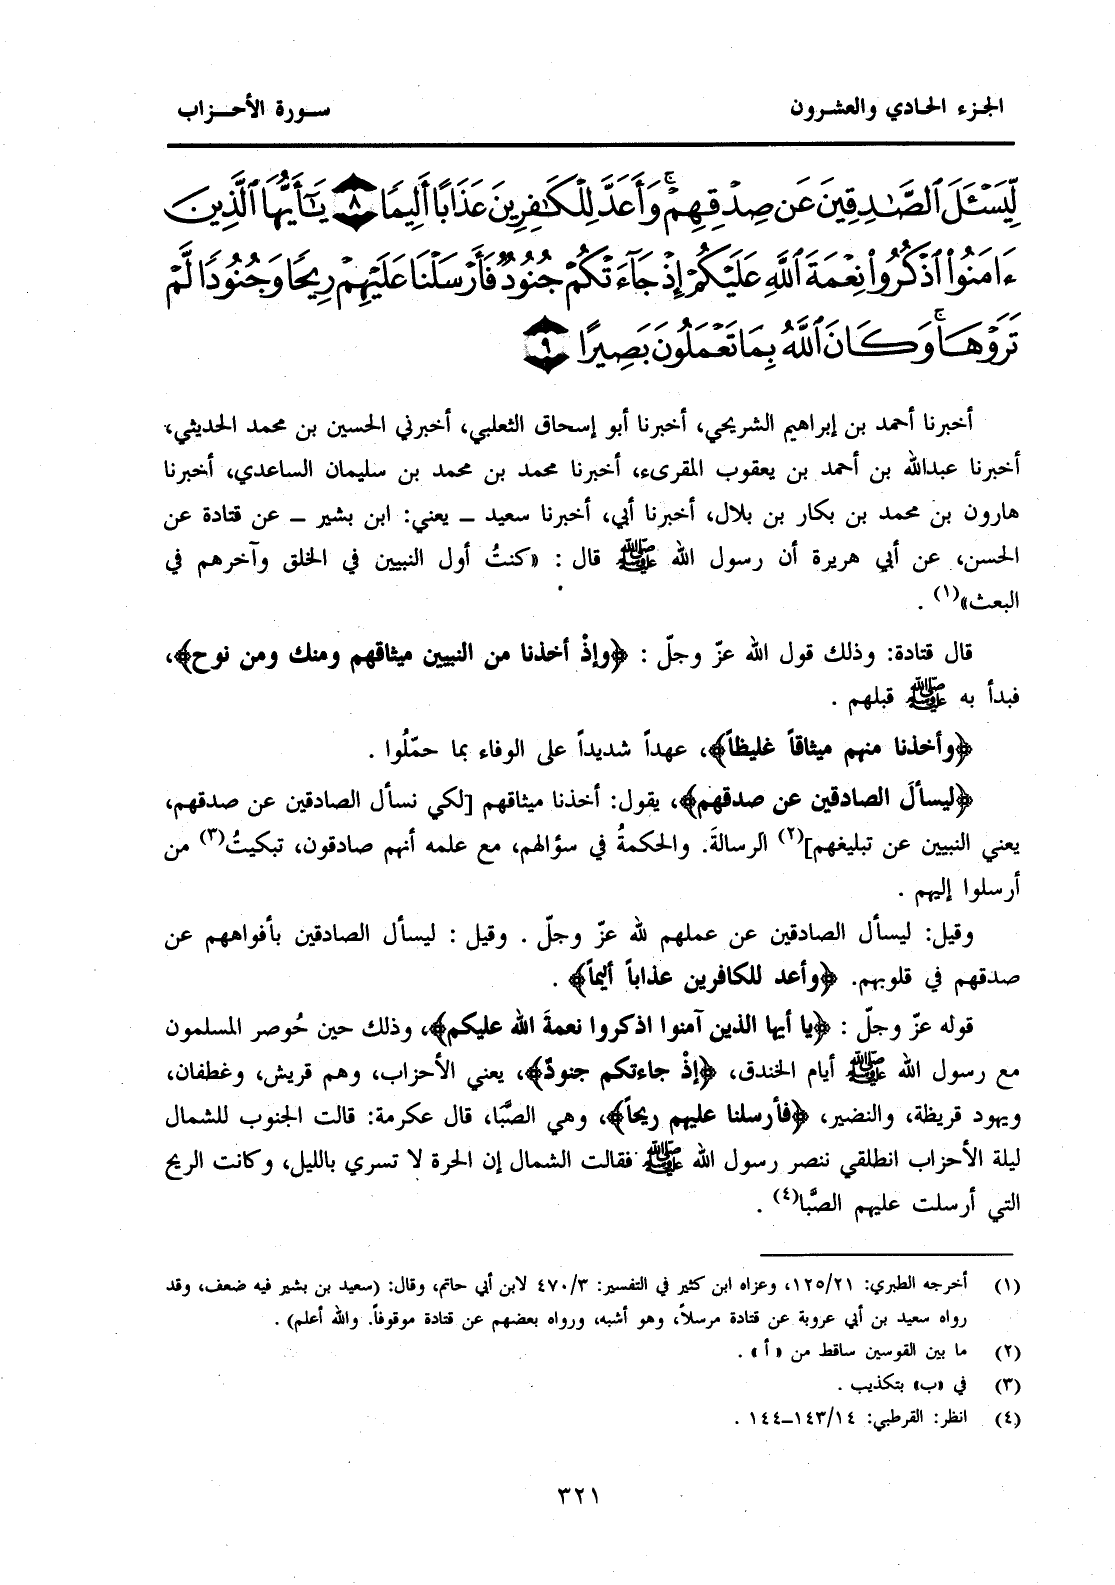 الجزء الحادي والعشرون
سورة الأحزاب
لِّيَسْـَٔلَ ٱلصَّـٰدِقِينَ عَن صِدْقِهِمْ ۚ وَأَعَدَّ لِلْكَـٰفِرِينَ عَذَابًا أَلِيمًا ٨ يَـٰٓأَيُّهَا ٱلَّذِينَ
ءَامَنُوا۟ ٱذْكُرُوا۟ نِعْمَةَ ٱللَّهِ عَلَيْكُمْ إِذْ جَآءَتْكُمْ جُنُودٌ فَأَرْسَلْنَا عَلَيْهِمْ رِيحًا وَجُنُودًا لَّمْ
تَرَوْهَا ۚ وَكَانَ ٱللَّهُ بِمَا تَعْمَلُونَ بَصِيرًا ٩
أخبرنا أحمد بن إبراهيم الشريحي، أخبرنا أبو إسحاق الثعلبي، أخبرني الحسين بن محمد الحديثي،
أخبرنا عبدالله بن أحمد بن يعقوب المقرىء، أخبرنا محمد بن محمد بن سليمان الساعدي، أخبرنا
هارون بن محمد بن بكار بن بلال، أخبرنا أبي، أخبرنا سعيد ــ يعني: ابن بشير ــ عن قتادة عن
الحسن، عن أبي هريرة أن رسول الله ﷺ قال : «كنتُ أول النبيين في الخلق وآخرهم في
البعث»(١) .
قال قتادة: وذلك قول الله عزّ وجلّ : ﴿وإذْ أخذنا من النبيين ميثاقهم ومنك ومن نوح﴾،
فبدأ به ﷺ قبلهم .
﴿وأخذنا منهم ميثاقاً غليظاً﴾، عهداً شديداً على الوفاء بما حمّلُوا .
﴿ليسألَ الصادقين عن صدقهم﴾، يقول: أخذنا ميثاقهم [لكي نسأل الصادقين عن صدقهم،
يعني النبيين عن تبليغهم](٢) الرسالةَ. والحكمةُ في سؤالهم، مع علمه أنهم صادقون، تبكيتُ(٣) من
أرسلوا إليهم .
وقيل: ليسأل الصادقين عن عملهم لله عزّ وجلّ . وقيل : ليسأل الصادقين بأفواههم عن
صدقهم في قلوبهم. ﴿وأعد للكافرين عذاباً أليماً﴾ .
قوله عزّ وجلّ : ﴿يا أيها الذين آمنوا اذكروا نعمةَ الله عليكم﴾، وذلك حين حُوصر المسلمون
مع رسول الله ﷺ أيام الخندق، ﴿إذْ جاءتكم جنودٌ﴾، يعني الأحزاب، وهم قريش، وغطفان،
ويهود قريظة، والنضير، ﴿فأرسلنا عليهم ريحاً﴾، وهي الصَّبا، قال عكرمة: قالت الجنوب للشمال
ليلة الأحزاب انطلقي ننصر رسول الله ﷺ فقالت الشمال إن الحرة لا تسري بالليل، وكانت الريح
التي أرسلت عليهم الصَّبا(٤) .
(١) أخرجه الطبري: ١٢٥/٢١، وعزاه ابن كثير في التفسير: ٤٧٠/٣ لابن أبي حاتم، وقال: (سعيد بن بشير فيه ضعف، وقد
رواه سعيد بن أبي عروبة عن قتادة مرسلاً، وهو أشبه، ورواه بعضهم عن قتادة موقوفاً. والله أعلم) .
(٢) ما بين القوسين ساقط من « أ » .
(٣) في «ب» بتكذيب .
(٤) انظر: القرطبي: ١٤٣/١٤ــ١٤٤ .
٣٢١